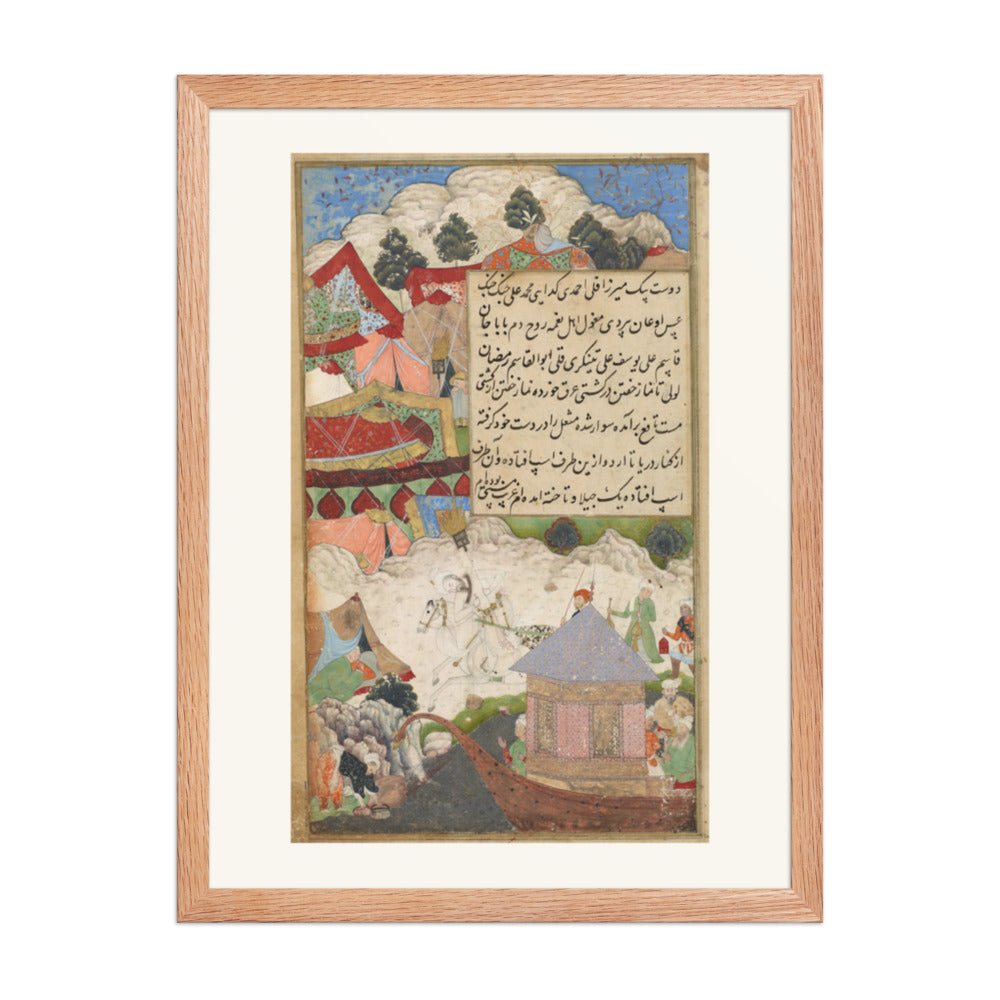 دوست بیک میرزا قلی احمدی کدایی محمد علی جنک جنک
عسس اوغان بردی مغول اهل نغمه روح دم بابا جان
قاسم علی یوسف علی تینکری قلی ابوالقاسم رمضان
لولی تا نماز خفتن در کشتی عرق خورده نماز خفتن از کشتی
مست تافغ برآمده سوار شده مشعل را در دست خود کرفته
از کنار دریا تا اردو ازین طرف اسپ افتاده و آن طرف
اسپ افتاده یک جیلاو تاخته آمده‌ام غریب مستی بوده‌ام